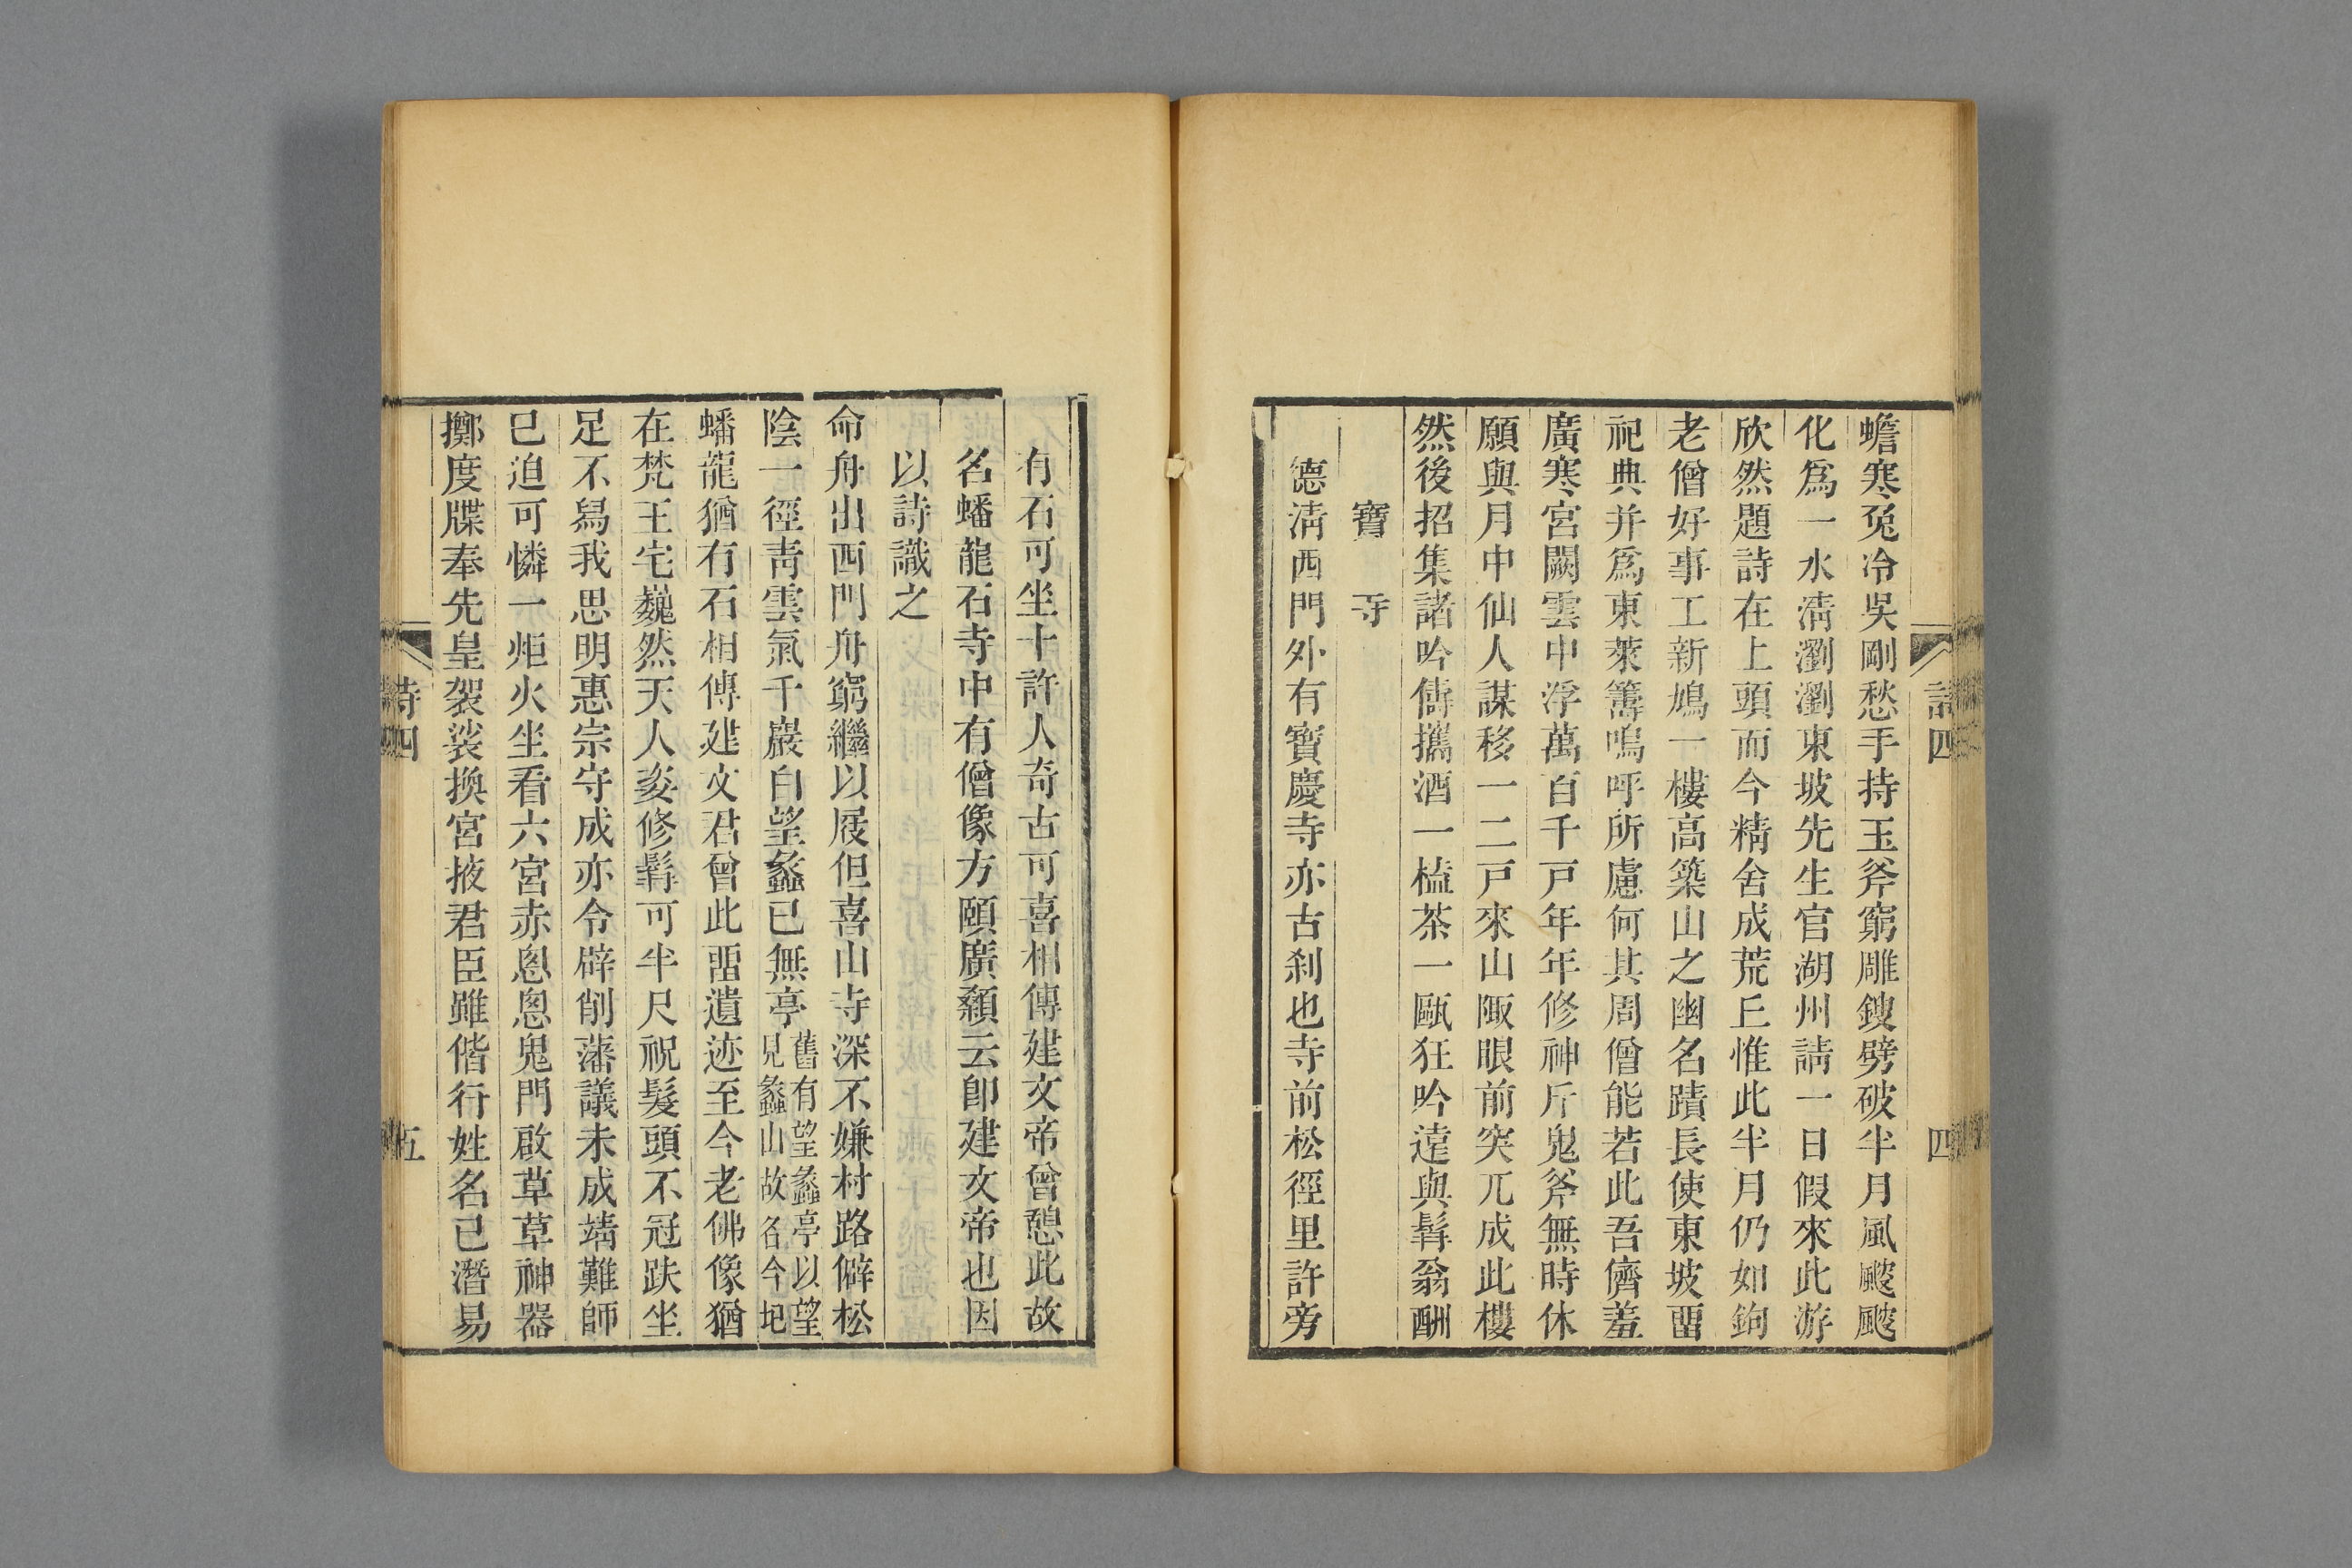 蟾寒兎冷吳剛愁手持玉斧窮雕鎪劈破半月風颼颼
化爲一水淸瀏瀏東坡先生官湖州請一日假來此游
欣然題詩在上頭而今精舍成荒丘惟此半月仍如鉤
老僧好事工新鳩一樓高築山之幽名蹟長使東坡畱
祀典并爲東萊籌嗚呼所慮何其周僧能若此吾儕羞
廣寒宮闕雲中浮萬百千戸年年修神斤鬼斧無時休
願與月中仙人謀移一二戸來山陬眼前突兀成此樓
然後招集諸吟儔攜酒一榼茶一甌狂吟遠與髯翁酬
寶寺
德淸西門外有寶慶寺亦古刹也寺前松徑里許旁
詩四
四
有石可坐十許人奇古可喜相傳建文帝曾憩此故
名蟠龍石寺中有僧像方頤廣顙云卽建文帝也因
以詩識之
命舟出西門舟窮繼以屐但喜山寺深不嫌村路僻松
陰一徑靑雲氣千巖白望蠡已無亭舊有望蠡亭以望見蠡山故名今圯
蟠龍猶有石相傳建文君曾此畱遺迹至今老佛像猶
在梵王宅巍然天人姿修髯可半尺祝髮頭不冠趺坐
足不舃我思明惠宗守成亦令辟削藩議未成靖難師
已迫可憐一炬火坐看六宮赤恖恖鬼門啟草草神器
擲度牒奉先皇袈裟換宮掖君臣雖偕行姓名已潛易
詩四
五